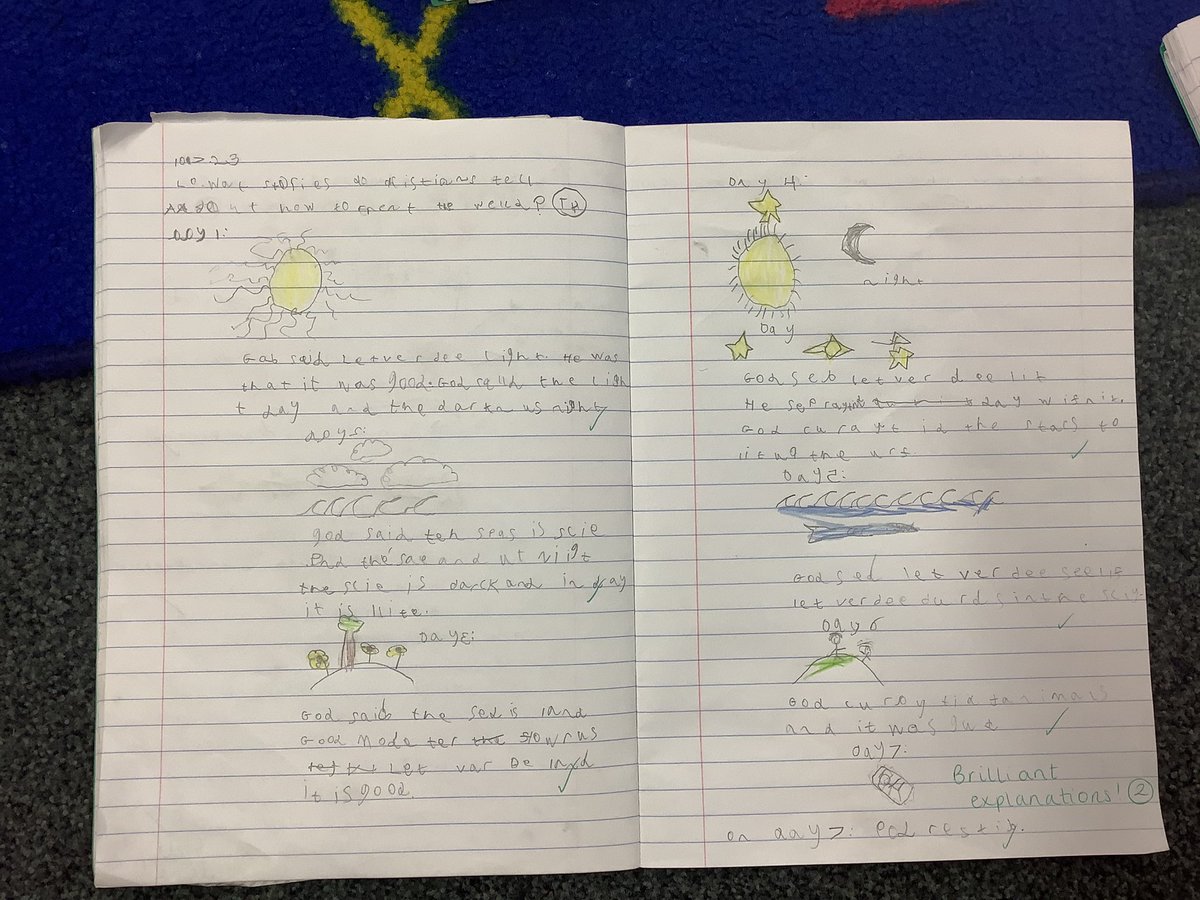 10.2.23
LO. Wat stories do cristians tell
out how to creat the weuld? TA
Day 1:
God said Let ver dee Light. He was
that it was good. God said the Ligh
t day and the dark n us night
days:
god said teh seas is scie
End the sae and ut night
the scie is darck and in day
it is lite.
Day 3:
God said the sed is land
Good Made ter the flowrus
Let var be land
it is good.
Day 4:
night
Day
God seb let ver dee lit
He seprayt day wif nit.
God curayt id the stars to
lit up the urf
Day 5:
God sed let ver dee see lif
let ver dee durds in the sciy
Day 6
God curaytid tanimals
and it was gud
Day 7:
Brilliant
explanations! 2
on day 7: God restid.